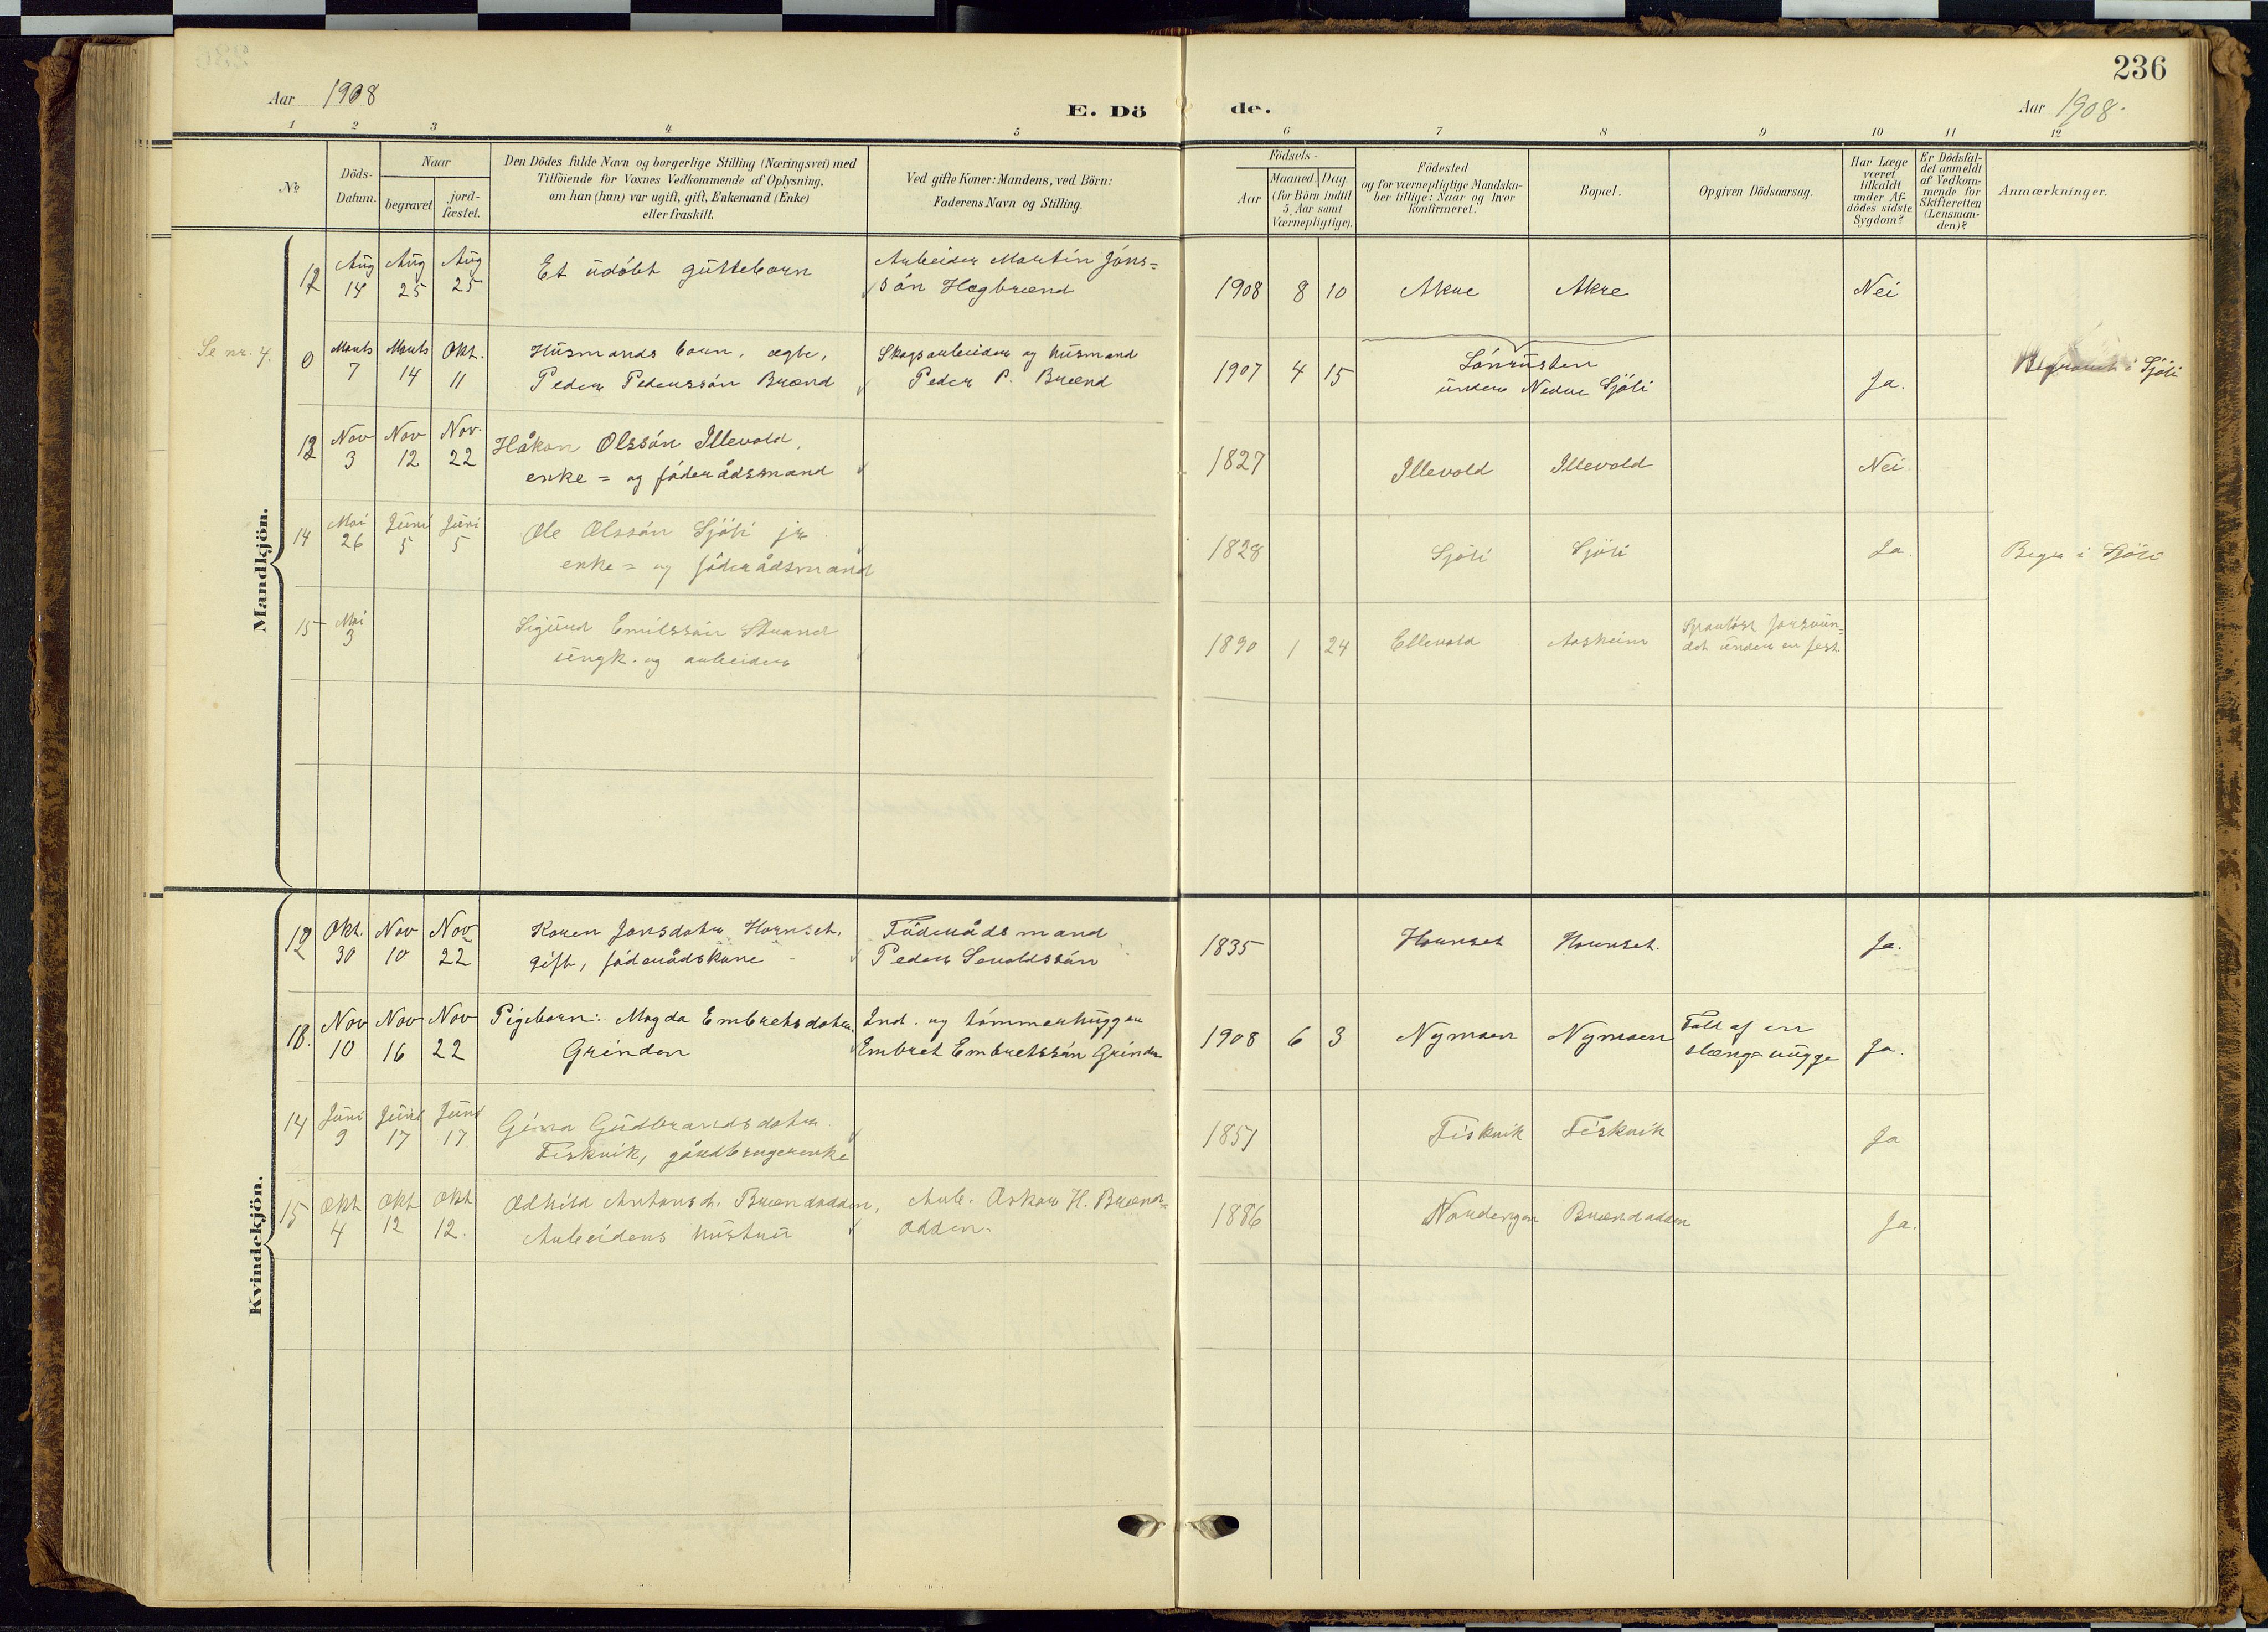 236
Aar 1908
E. Dö de.
Aar 1908.
1 2 3 4 5 6 7 8 9 10 11 12
No
Döds-
Datum.
Naar
begravet
jord-
fæstet.
Den Dödes fulde Navn og borgerlige Stilling (Næringsvei) med
Tilföiende for Voxnes Vedkommende af Oplysning,
om han (hun) var ugift, gift, Enkemand (Enke)
eller fraskilt.
Ved gifte Koner: Mandens, ved Börn:
Faderens Navn og Stilling.
Födsels-
Aar
Maaned. Dag.
(for Börn indtil
5 Aar samt
Værnepligtige).
Födested
og for værnepligtige Mandska-
ber tillige: Naar og hvor
konfirmeret.
Bopæl.
Opgiven Dödsaarsag.
Har Læge
været
tilkaldt
under Af-
dödes sidste
Sygdom?
Er Dödsfal-
det anmeldt
af Vedkom-
mende for
Skifteretten
(Lensman-
den)?
Anmærkninger.
Mandkjön.
12 Aug 14 Aug 25 Aug 25
Et udöbt guttebarn
Arbeider Martin Jons=
sön Hagbrænd
1908 8 10 Akre Akre Nei
Se nr. 4.
0 Marts 7 Marts 14 Okt. 11
Husmands barn, ægte,
Peder Pederssön Brænd
Skogsarbeider og husmand
Peder P. Brænd
1907 4 15
under Nedre Sjöli
Ja.
Sjöli
13 Nov 3 Nov 12 Nov. 22
Håkon Olssön Illevold,
enke = og föderådsmand
1827 Illevold Illevold Nei
14 Mai 26 Juni 5 Juni 5
Ole Olssön Sjöli jr.
enke = og föderådsmand
1828 Sjöli Sjöli Ja. Begr i Sjöli
15 Mai 3
Sigurd Emilssön Strand
ungk. og arbeider
1890 1 24 Ellevold Aasheim
Sporlöst forsvun=
det under en fest.
Kvindekjön.
12 Okt. 30 Nov 10 Nov 22
Karen Jonsdater Hornset,
gift, föderådskone
Föderådsmand
Peder Sevoldssön
1835 Hornset Hornset. Ja.
13. Nov 10 Nov 16 Nov 22
Pigebarn: Magda Embretsdater
Grinden
Ind. og tömmerhugger
Embret Embretssön Grinden
1908 6 3 Nymoen Nymoen
Fald af en
slængevugge
Ja.
14 Juni 9 Juni 17 Juni 17
Gina Gudbrandsdater
Fiskvik, gårdbrugerenke
1851 Fiskvik Fiskvik Ja
15 Okt 4 Okt 12 Okt 12.
Odhild Antonsd. Brændodden,
Arbeiders hustru
Arb. Oskar H. Brænd=
odden.
1886 Nordengen Brændodden Ja.